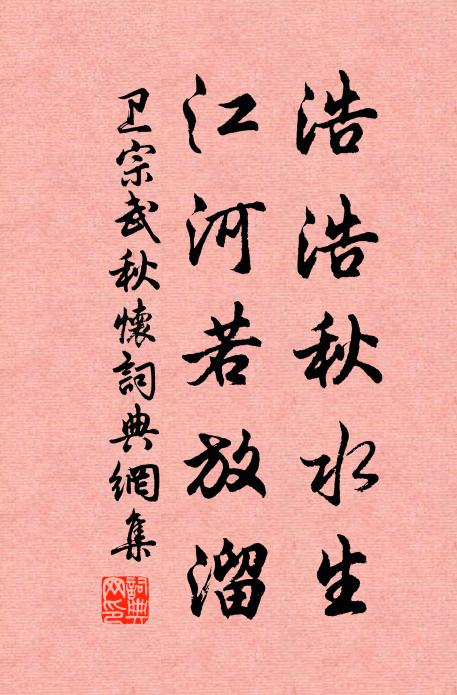 浩浩秋水生
江河若放溜
卫宗武秋懷詞典網集
詞典網印